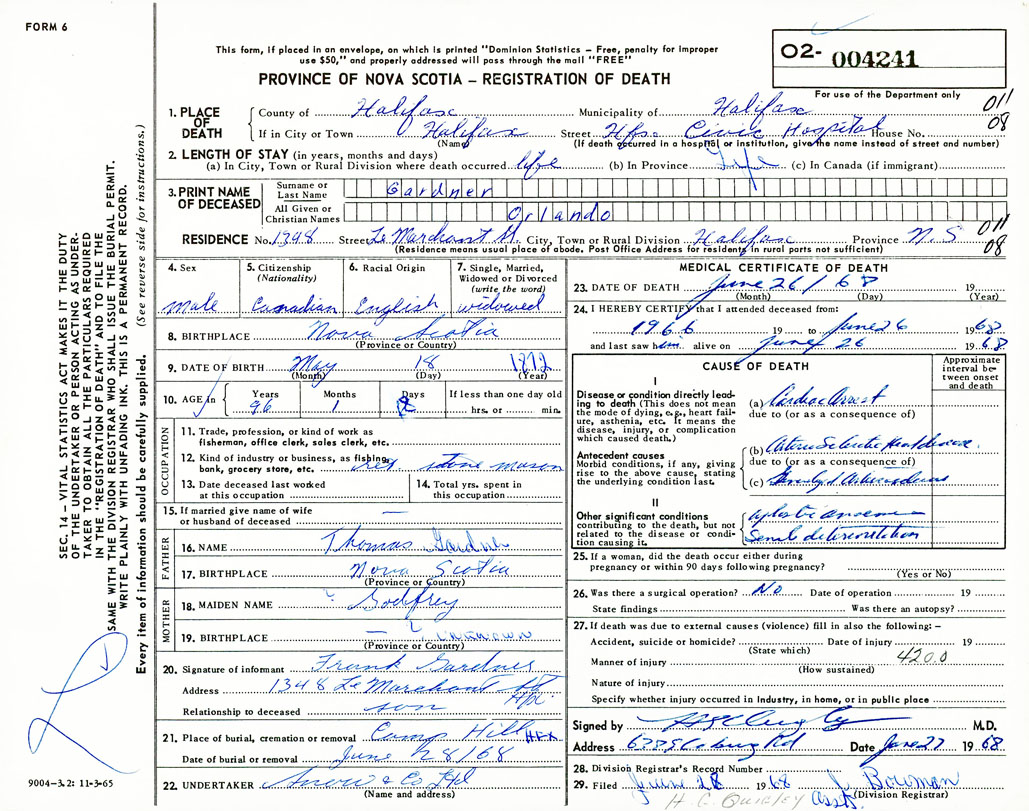 FORM 6
This form, if placed in an envelope, on which is printed "Dominion Statistics – Free, penalty for improper
use $50," and properly addressed will pass through the mail "FREE"
PROVINCE OF NOVA SCOTIA – REGISTRATION OF DEATH
02- 004241
For use of the Department only
011
08
1. PLACE OF DEATH
County of Halifax Municipality of Halifax
If in City or Town Halifax Street Hfx. Civic Hospital House No.
(Name) (If death occurred in a hospital or institution, give the name instead of street and number)
2. LENGTH OF STAY (in years, months and days)
(a) In City, Town or Rural Division where death occurred life (b) In Province Life (c) In Canada (if immigrant)
3. PRINT NAME OF DECEASED
Surname or Last Name Gardner
All Given or Christian Names Orlando
RESIDENCE No. 1348 Street Le Marchant St. City, Town or Rural Division Halifax Province N.S
(Residence means usual place of abode. Post Office Address for residents in rural parts not sufficient)
011
08
4. Sex
male
5. Citizenship
(Nationality)
Canadian
6. Racial Origin
English
7. Single, Married,
Widowed or Divorced
(write the word)
widowed
8. BIRTHPLACE Nova Scotia
(Province or Country)
9. DATE OF BIRTH May 18 1872
(Month) (Day) (Year)
10. AGE in Years 96 Months 1 Days 8 If less than one day old
hrs. or min.
OCCUPATION
11. Trade, profession, or kind of work as
fisherman, office clerk, sales clerk, etc.
12. Kind of industry or business, as fishing,
bank, grocery store, etc. stone mason
13. Date deceased last worked
at this occupation
14. Total yrs. spent in
this occupation
15. If married give name of wife
or husband of deceased —
FATHER
16. NAME Thomas Gardner
17. BIRTHPLACE Nova Scotia
(Province or Country)
MOTHER
18. MAIDEN NAME Godfrey
19. BIRTHPLACE — unknown
(Province or Country)
20. Signature of informant Frank Gardner
Address 1348 Le Marchant St
Relationship to deceased son
21. Place of burial, cremation or removal Camp Hill HFX
Date of burial or removal June 28/68
22. UNDERTAKER Snow & Co. Ltd
(Name and address)
MEDICAL CERTIFICATE OF DEATH
23. DATE OF DEATH June 26/68 19
(Month) (Day) (Year)
24. I HEREBY CERTIFY that I attended deceased from:
1966 19 to June 26 1968
and last saw him alive on June 26 1968
CAUSE OF DEATH
Approximate
interval be-
tween onset
and death
I
Disease or condition directly lead-
ing to death (This does not mean
the mode of dying, e.g., heart fail-
ure, asthenia, etc. It means the
disease, injury, or complication
which caused death.)
(a) Cardiac Arrest
due to (or as a consequence of)
Antecedent causes
Morbid conditions, if any, giving
rise to the above cause, stating
the underlying condition last.
(b) Arterio Sclerotic Heart disease.
due to (or as a consequence of)
(c) Arteriosclerosis
II
Other significant conditions
contributing to the death, but not
related to the disease or condi-
tion causing it.
aplastic anaemia
Senile deterioration
25. If a woman, did the death occur either during
pregnancy or within 90 days following pregnancy?
(Yes or No)
26. Was there a surgical operation? No Date of operation 19
State findings Was there an autopsy?
27. If death was due to external causes (violence) fill in also the following: –
Accident, suicide or homicide? Date of injury 19
(State which)
Manner of injury 420.0
(How sustained)
Nature of injury
Specify whether injury occurred in Industry, in home, or in public place
Signed by M.D.
Address Rd Date June 27 1968
28. Division Registrar's Record Number
29. Filed June 28 1968 Bowman
(Division Registrar)
H. C. QUIGLEY Asst.
SEC. 14 – VITAL STATISTICS ACT MAKES IT THE DUTY
OF THE UNDERTAKER OR PERSON ACTING AS UNDER-
TAKER TO OBTAIN ALL THE PARTICULARS REQUIRED
IN THE "REGISTRATION OF DEATH" AND TO FILE THE
SAME WITH THE DIVISION REGISTRAR WHO SHALL ISSUE THE BURIAL PERMIT.
WRITE PLAINLY WITH UNFADING INK. THIS IS A PERMANENT RECORD.
Every item of information should be carefully supplied. (See reverse side for instructions.)
9004-3.2: 11-3-65